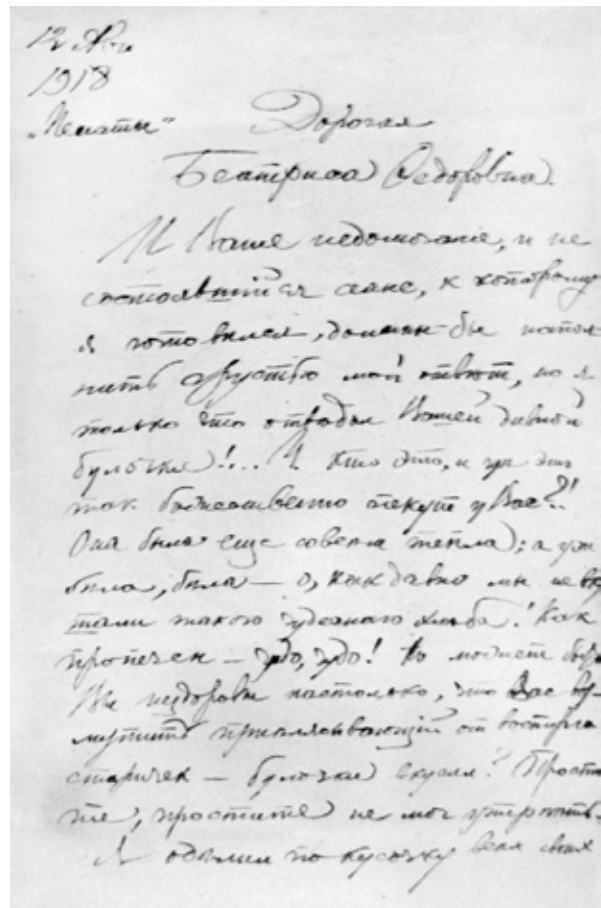 12 Авг.
1918
„Пенаты“
Дорогая
Беатриса Федоровна.
И Ваше недомогание, и не
состоявшийся сеанс, к которому
я готовился, должны бы напол-
нить грустью мой ответ, но я
только что отведал Вашей дивной
булочки!... И кто это, и где это
так божественно пекут у Вас?!
Она была еще совсем тепла; а уж
бела, бела — о, как давно мы не вку
шали такого чудесного хлеба! Как
пропечен — чудо, чудо! Но может быть
Вы нездоровы настолько, что Вас воз-
мутит приплясывающий от восторга
старичек — булочки вкусил? Прости
те, простите не мог утерпеть.
Я оделил по кусочку всех своих